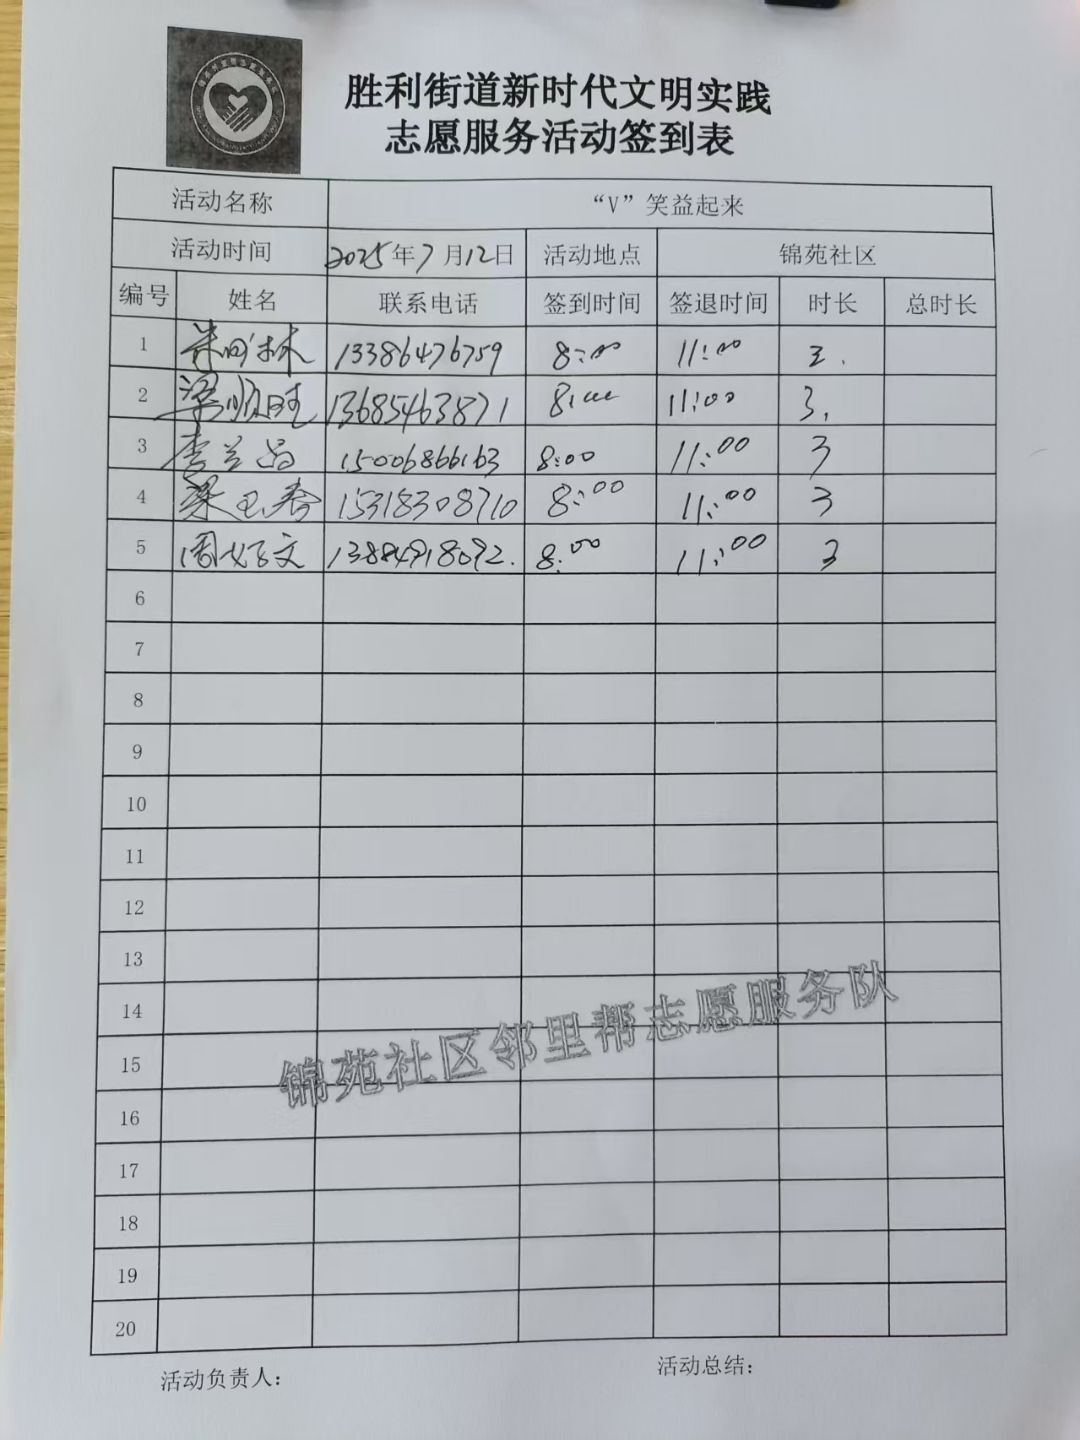 胜利街道新时代文明实践
志愿服务活动签到表
活动名称 “V”笑益起来
活动时间 2025年7月12日 活动地点 锦苑社区
编号 姓名 联系电话 签到时间 签退时间 时长 总时长
1 林 13386476759 8:00 11:00 3.
2 梁顺旺 13685463871 8:00 11:00 3.
3 李兰昌 15006866163 8:00 11:00 3
4 梁玉春 15318308710 8:00 11:00 3
5 周好文 13884918092. 8:00 11:00 3
6
7
8
9
10
11
12
13
14
15
16
17
18
19
20
锦苑社区邻里帮志愿服务队
活动负责人: 活动总结: